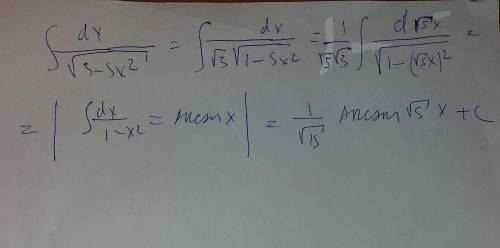 ∫ dx / √(3-5x²) = ∫ dx / (√3 √(1-5x²)) = 1/(√5√3) ∫ d√5x / √(1-(√5x)²) =
= | ∫ dx / (1-x²) = arcsin x | = 1/√15 arcsin √5 x + C